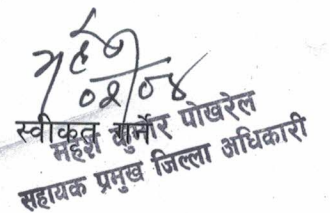 ०२/०४
स्वीकृत गर्ने
महेश कुमार पोखरेल
सहायक प्रमुख जिल्ला अधिकारी